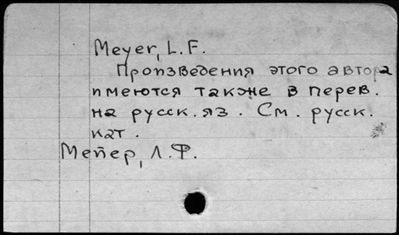 Meyer, L. F.
Произведения этого автора
имеются также в перев.
на русск. яз. См. русск.
кат.
Мейер, Л. Ф.